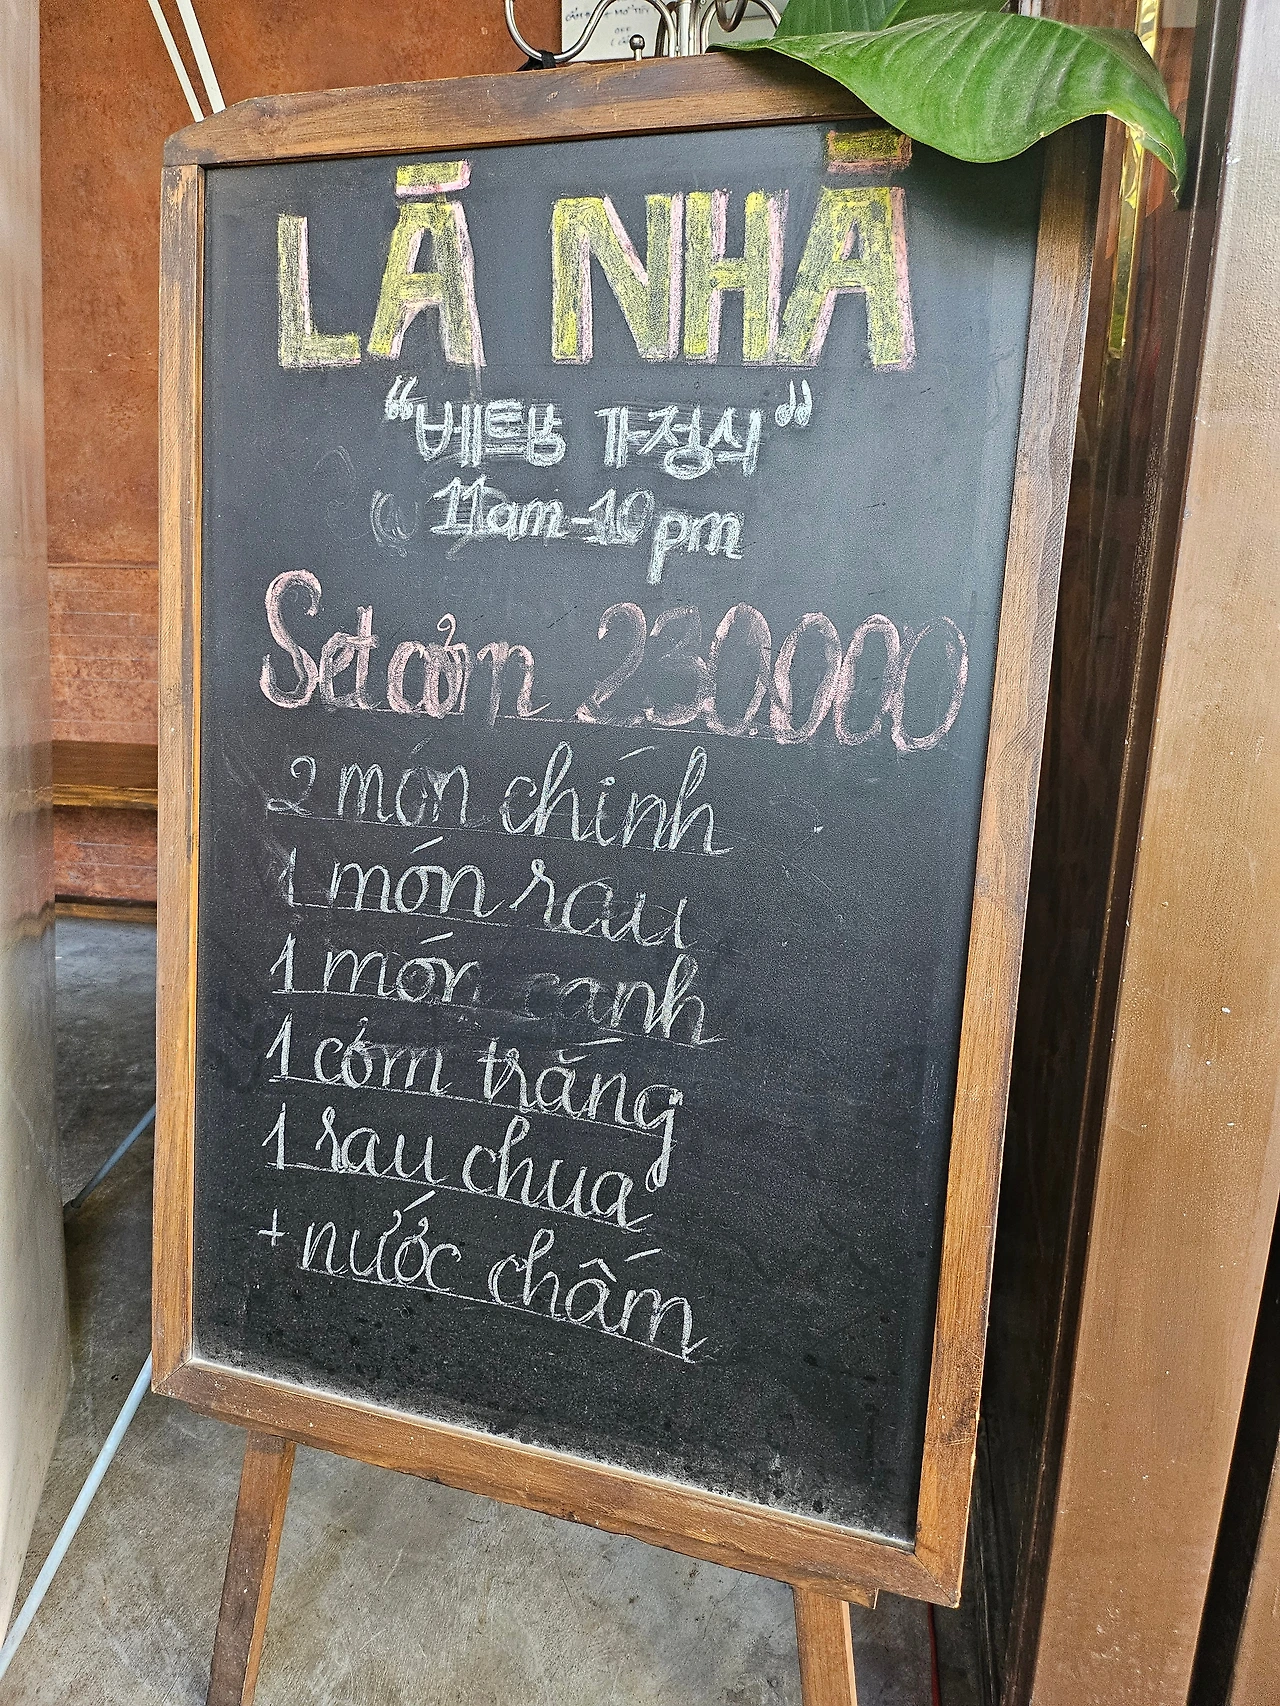 LÃ NHÃ
"베트남 가정식"
11am-10pm
Set cơm 230.000
2 món chính
1 món rau
1 món canh
1 cơm trắng
1 rau chua
+ nước chấm